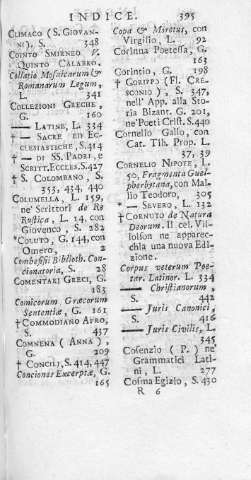 INDICE. 395
CLIMACO (S. GIOVAN-
NI), S. 348
COINTO SMIRNEO V.
QUINTO CALABRO.
Collatio Mosaicarum &
Romanarum Legum,
L. 341
COLLEZIONI GRECHE,
G. 160
—— LATINE, L. 334
† —— SACRE ED EC-
CLESIASTICHE, S. 414
† — DI SS. PADRI, E
SCRITT. ECCLES. S. 427
† S. COLOMBANO, S.
353, 434, 440
COLUMELLA, L. 159,
ne' Scrittori de Re
Rustica, L. 14, con
Giovenco, S. 282
*COLUTO, G. 144, con
Omero, 2
Combefisii Biblioth. Con-
cionatoria, S. 28
COMENTARI GRECI, G.
183
Comicorum Græcorum
Sententiæ, G. 161
† COMMODIANO AFRO,
S. 437
COMNENA (ANNA),
G. 209
† CONCILJ, S. 414, 447
Conciones Excerptæ, G.
165
Copa & Moretus, con
Virgilio L. 92
Corinna Poetessa, G.
163
Corintio, G. 198
† GORIPPO (FL. CRE-
SCONIO), S. 347,
nell' App. alla Sto-
ria Bizant. G. 201,
ne' Poeti Crist. S. 440
Cornelio Gallo, con
Cat. Tib. Prop. L.
37, 39
CORNELIO NIPOTE, L.
50, Fragmenta Guel-
pherbytana, con Mal-
lio Teodoro, 305
* —— SEVERO, L. 132
† CORNUTO de Natura
Deorum. Il cel. Vil-
loison ne apparec-
chia una nuova Edi-
zione.
Corpus veterum Poe-
tar. Latinor. L. 334
—— Christianorum,
S. 442
—— Juris Canonici,
S. 416
—— Juris Civilis, L.
345
Cosenzio (P.) ne'
Grammatici Lati-
ni, L. 277
Cosma Egizio, S. 430
R 6